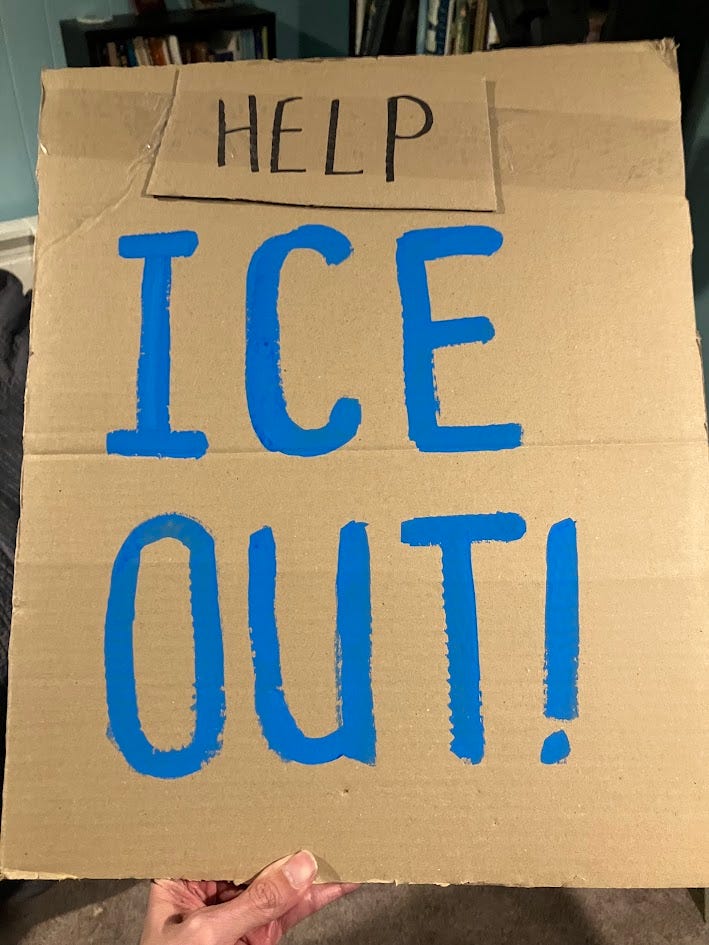 HELP
ICE
OUT!